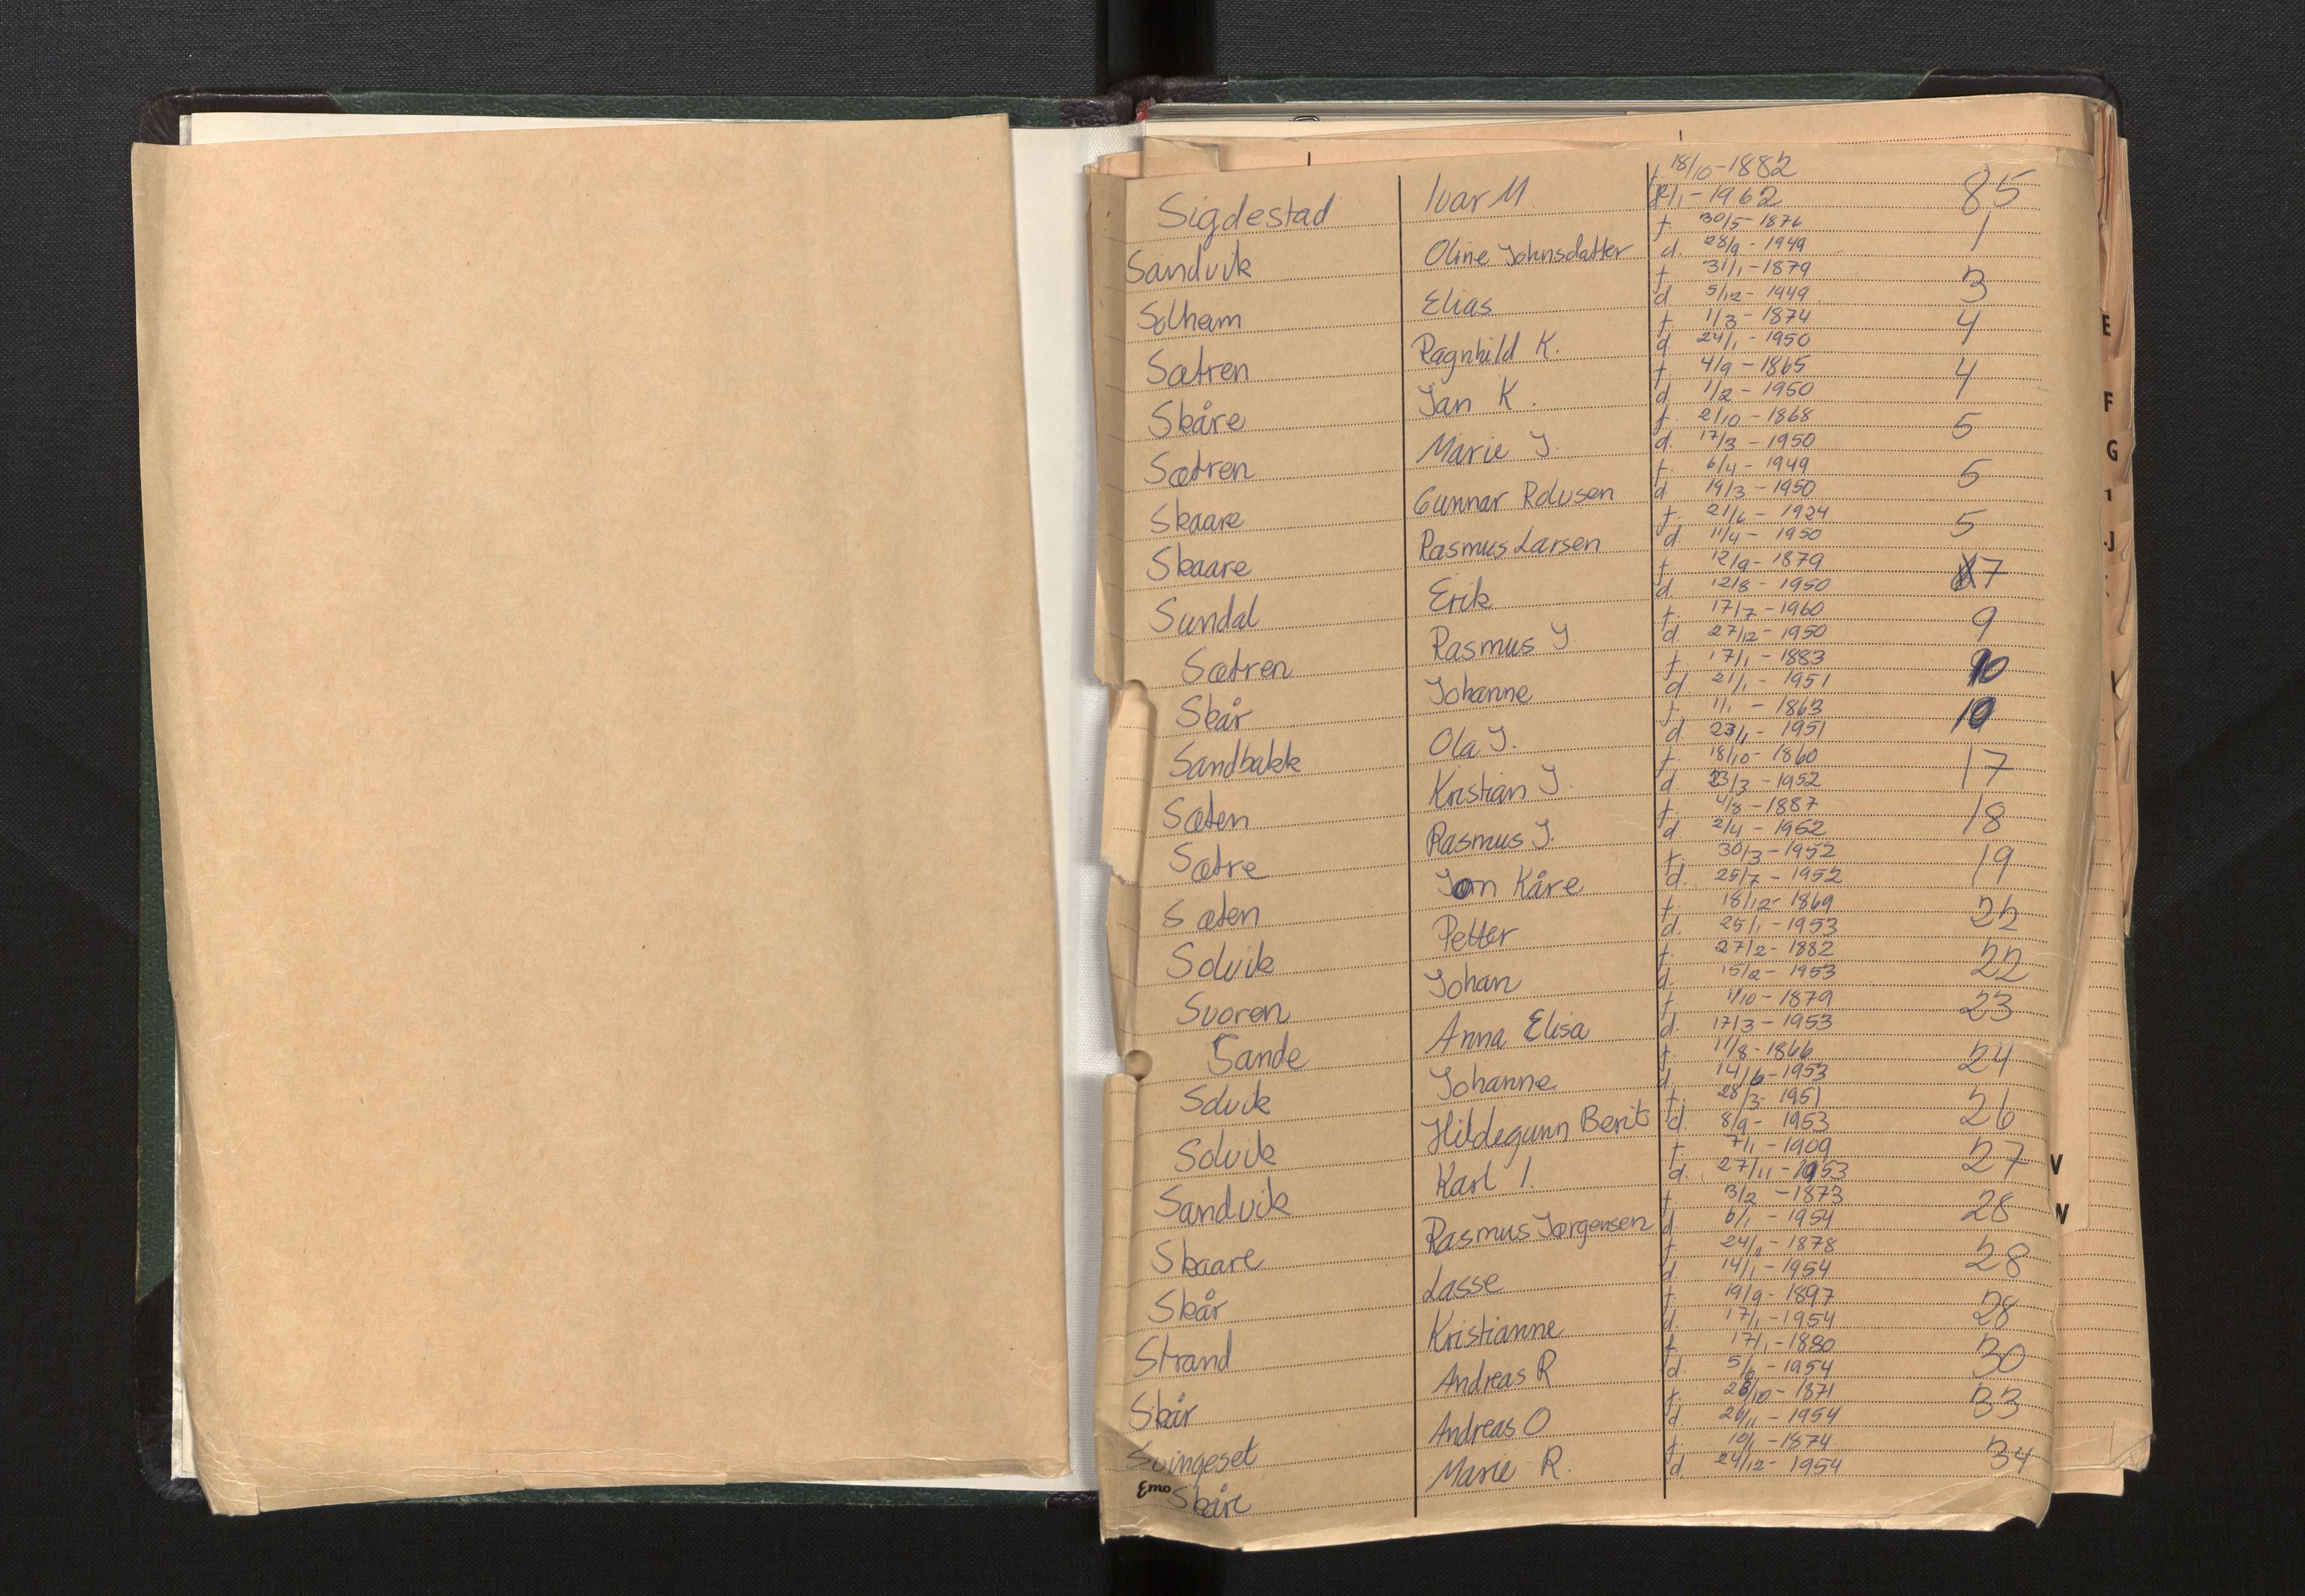 Sigdestad Ivar M f. 18/10-1882 85
d. 12/1-1962
Sandvik Oline Johnsdatter f. 30/5-1876 1
d. 28/9-1949
Solheim Elias f. 31/1-1879 3
d 5/12-1949
Sætren Ragnhild K. f. 1/3-1874 4
d 24/1-1950
Skåre Jan K. f. 4/9-1865 4
d. 1/2-1950
Sætren Marie J. f. 2/10-1868 5
d. 17/3-1950
Skaare Gunnar Rolvsen f. 6/4-1949 5
d. 19/3-1950
Skaare Rasmus Larsen f. 21/6-1924 5
d. 11/4-1950
Sundal Erik f. 12/9-1879 7
d. 12/8-1950
Sætren Rasmus J f. 17/7-1960 9
d. 27/12-1950
Skår Johanne f. 17/1-1883 10
d. 21/1-1951
Sandbakk Ola J. f. 1/1-1863 10
d. 23/1-1951
Sæten Kristian J. f. 18/10-1860 17
d. 23/3-1952
Sætre Rasmus J. f. 4/8-1887 18
d. 2/4-1952
Sæten Jon Kåre f. 30/3-1952 19
d. 25/7-1952
Solvik Petter f. 18/12-1869 22
d. 25/1-1953
Svoren Johan f. 27/2-1882 22
d. 15/2-1953
Sande Anna Elisa f. 1/10-1879 23
d. 17/3-1953
Solvik Johanne f. 11/8-1866 24
d. 14/6-1953
Solvik Hildegunn Berit f. 28/3-1951 26
d. 8/9-1953
Sandvik Karl I. f. 7/1-1909 27
d. 27/11-1953
Skaare Rasmus Jørgensen f 3/2-1873 28
d. 6/1-1954
Skår Lasse f. 24/-1878 28
d. 14/1-1954
Strand Kristianne f. 19/9-1897 28
d. 17/1-1954
Skår Andreas R f. 17/1-1880 30
d. 5/6-1954
Svingeset Andreas O f. 28/10-1871 33
d. 26/11-1954
Skåre Marie R. f. 10/1-1874 34
d. 24/12-1954
Emo
E
F
G
I
J
V
W